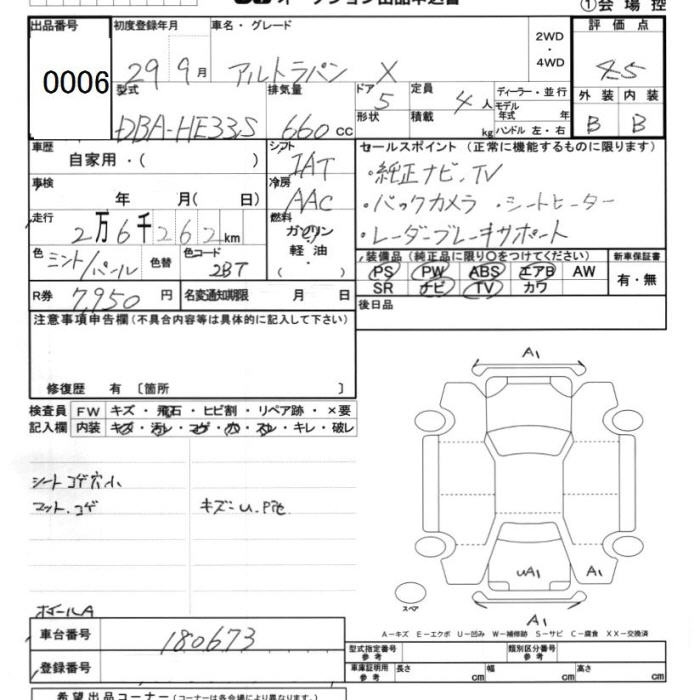 ①会場控
出品番号 初度登録年月 車名・グレード 2WD ・ 4WD 評価点
0006 29 9月 アルトラパン X 4.5
型式 排気量 ドア 5 定員 4人 ディーラー・並行 外装 内装
DBA-HE33S 660cc 形状 積載 kg モデル年式 年 B B
ハンドル 左・右
車歴 自家用・( ) シフト IAT セールスポイント (正常に機能するものに限ります)
車検 年 月( 日) 冷房 AAC ・純正ナビ.TV
・バックカメラ ・シートヒーター
走行 2万6千262km 燃料 ガソリン 軽油 ( ) ・レーダーブレーキサポート
色 ミント/パール 色替 色コード ZBT 装備品 (純正品に限り○をつけてください) 新車保証書
PS PW ABS エアB AW 有・無
SR ナビ TV カワ
R券 7,950円 名変通知期限 月 日 後日品
注意事項申告欄(不具合内容等は具体的に記入して下さい)
修復歴 有 〔箇所 〕
検査員 FW キズ・飛石・ヒビ割・リペア跡・×要
記入欄 内装 キズ・汚レ・コゲ・穴・スレ・キレ・破レ
シートコゲ穴小
マット.コゲ キズ=U.P他
ホイールA
A1
UA1 A1
スペア A1
A−キズ E−エクボ U−凹み W−補修跡 S−サビ C−腐食 XX−交換済
車台番号 180673
型式指定番号 参考 類別区分番号 参考
登録番号 車庫証明用 参考 長さ cm 幅 cm 高さ cm
希望出品コーナー(コーナーは各会場により異なります。)